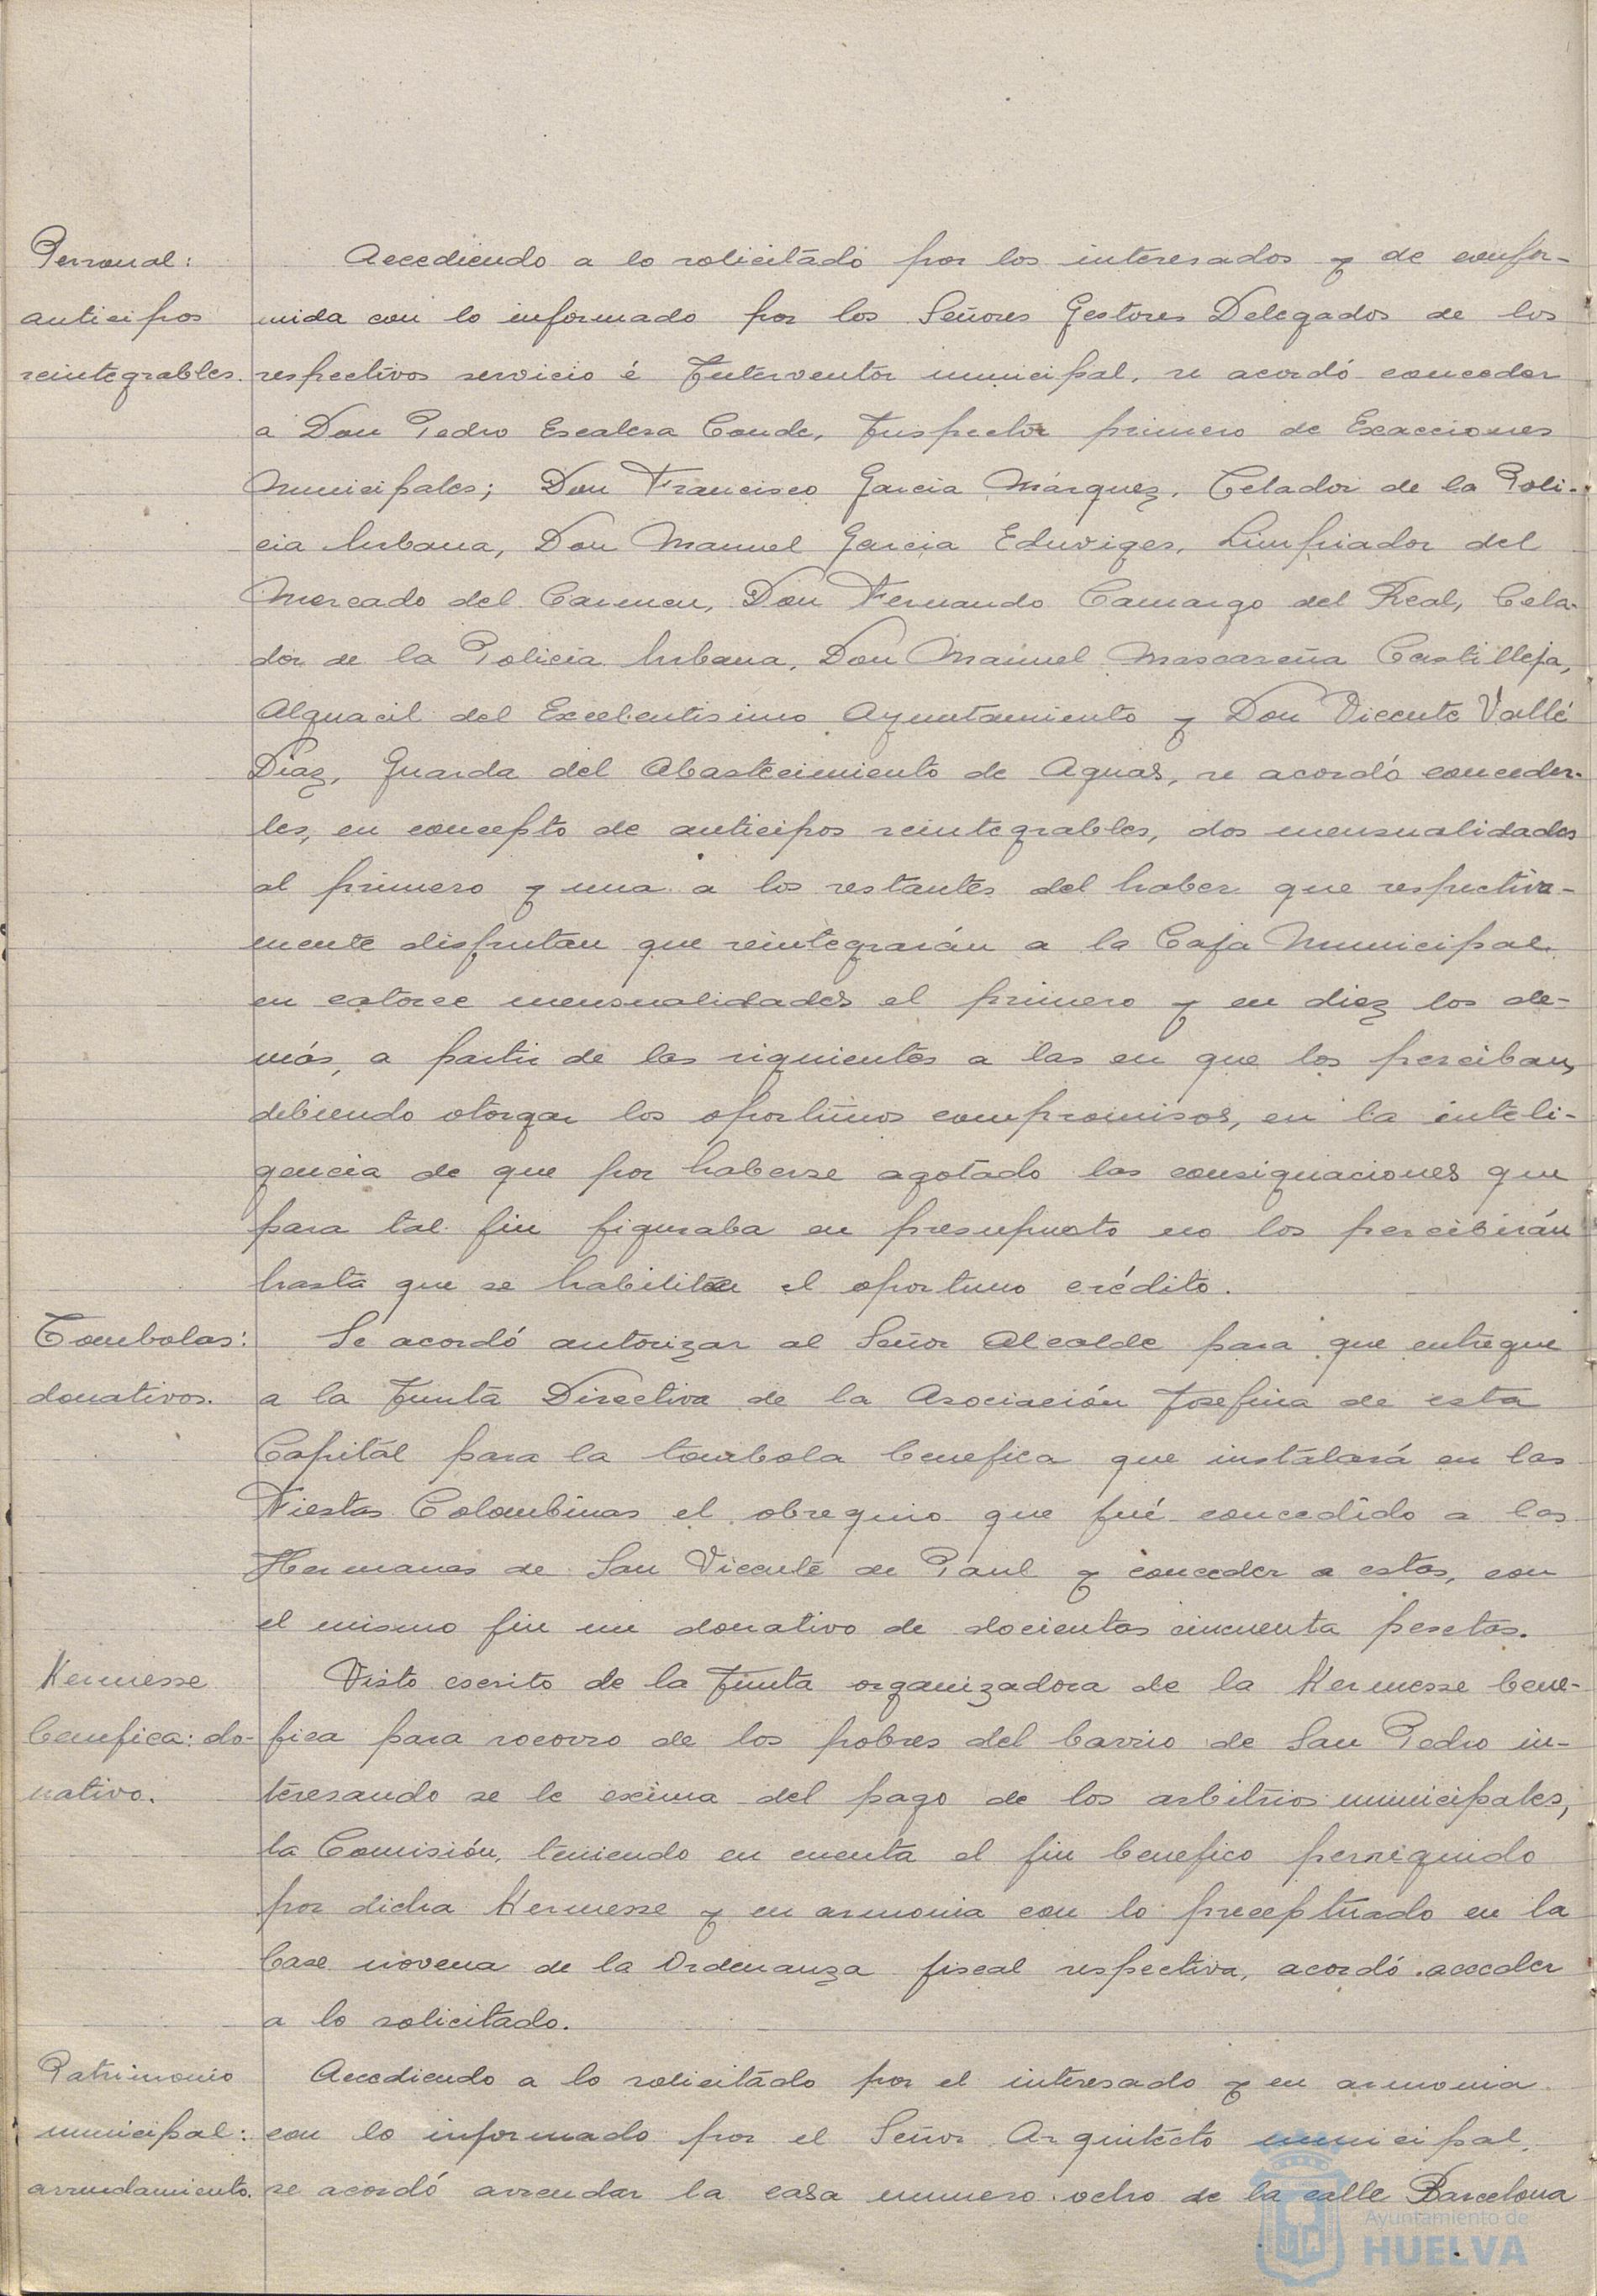 Personal:
anticipos
reintegrables.
Accediendo a lo solicitado por los interesados y de confor-
mida con lo informado por los Señores Gestores Delegados de los
respectivos servicio é Interventor municipal, se acordó conceder
a Don Pedro Escalera Conde, Inspector primero de Exacciones
Municipales; Don Francisco Garcia Márquez, Celador de la Poli-
cia Urbana, Don Manuel Garcia Eduviges, Limpiador del
Mercado del Carmen, Don Fernando Camargo del Real, Cela-
dor de la Policía Urbana, Don Manuel Mascareña Castilleja,
Alguacil del Excelentisimo Ayuntamiento y Don Vicente Vallé
Diaz, Guarda del Abastecimiento de Aguas, se acordó conceder-
les, en concepto de anticipos reintegrables, dos mensualidades
al primero y una a los restantes del haber que respectiva-
mente disfrutan que reintegrarán a la Caja Municipal
en catorce mensualidades el primero y en diez los de-
más, a partir de las siguientes a las en que los perciban,
debiendo otorgar los oportunos compromisos, en la inteli-
gencia de que por haberse agotado las consignaciones que
para tal fin figuraba en presupuesto no los percibirán
hasta que se habiliten el oportuno crédito.
Tombolas:
donativos.
Se acordó autorizar al Señor Alcalde para que entregue
a la Junta Directiva de la Asociación Josefina de esta
Capital para la tombola benefica que instalará en las
Fiestas Colombinas el obsequio que fué concedido a las
Hermanas de San Vicente de Paul y conceder a estas, con
el mismo fin un donativo de docientas cincuenta pesetas.
Kermesse
benefica: do-
nativo.
Visto escrito de la Junta organizadora de la Kermesse bene-
fica para socorro de los pobres del barrio de San Pedro in-
teresando se le exima del pago de los arbitrios municipales,
la Comisión, teniendo en cuenta el fin benefico perseguido
por dicha Kermesse y en armonia con lo preceptuado en la
base novena de la Ordenanza fiscal respectiva, acordó acceder
a lo solicitado.
Patrimonio
municipal:
arrendamiento.
Accediendo a lo solicitado por el interesado y en armonia
con lo informado por el Señor Arquitecto municipal,
se acordó arrendar la casa numero ocho de la calle Barcelona
Ayuntamiento de
HUELVA